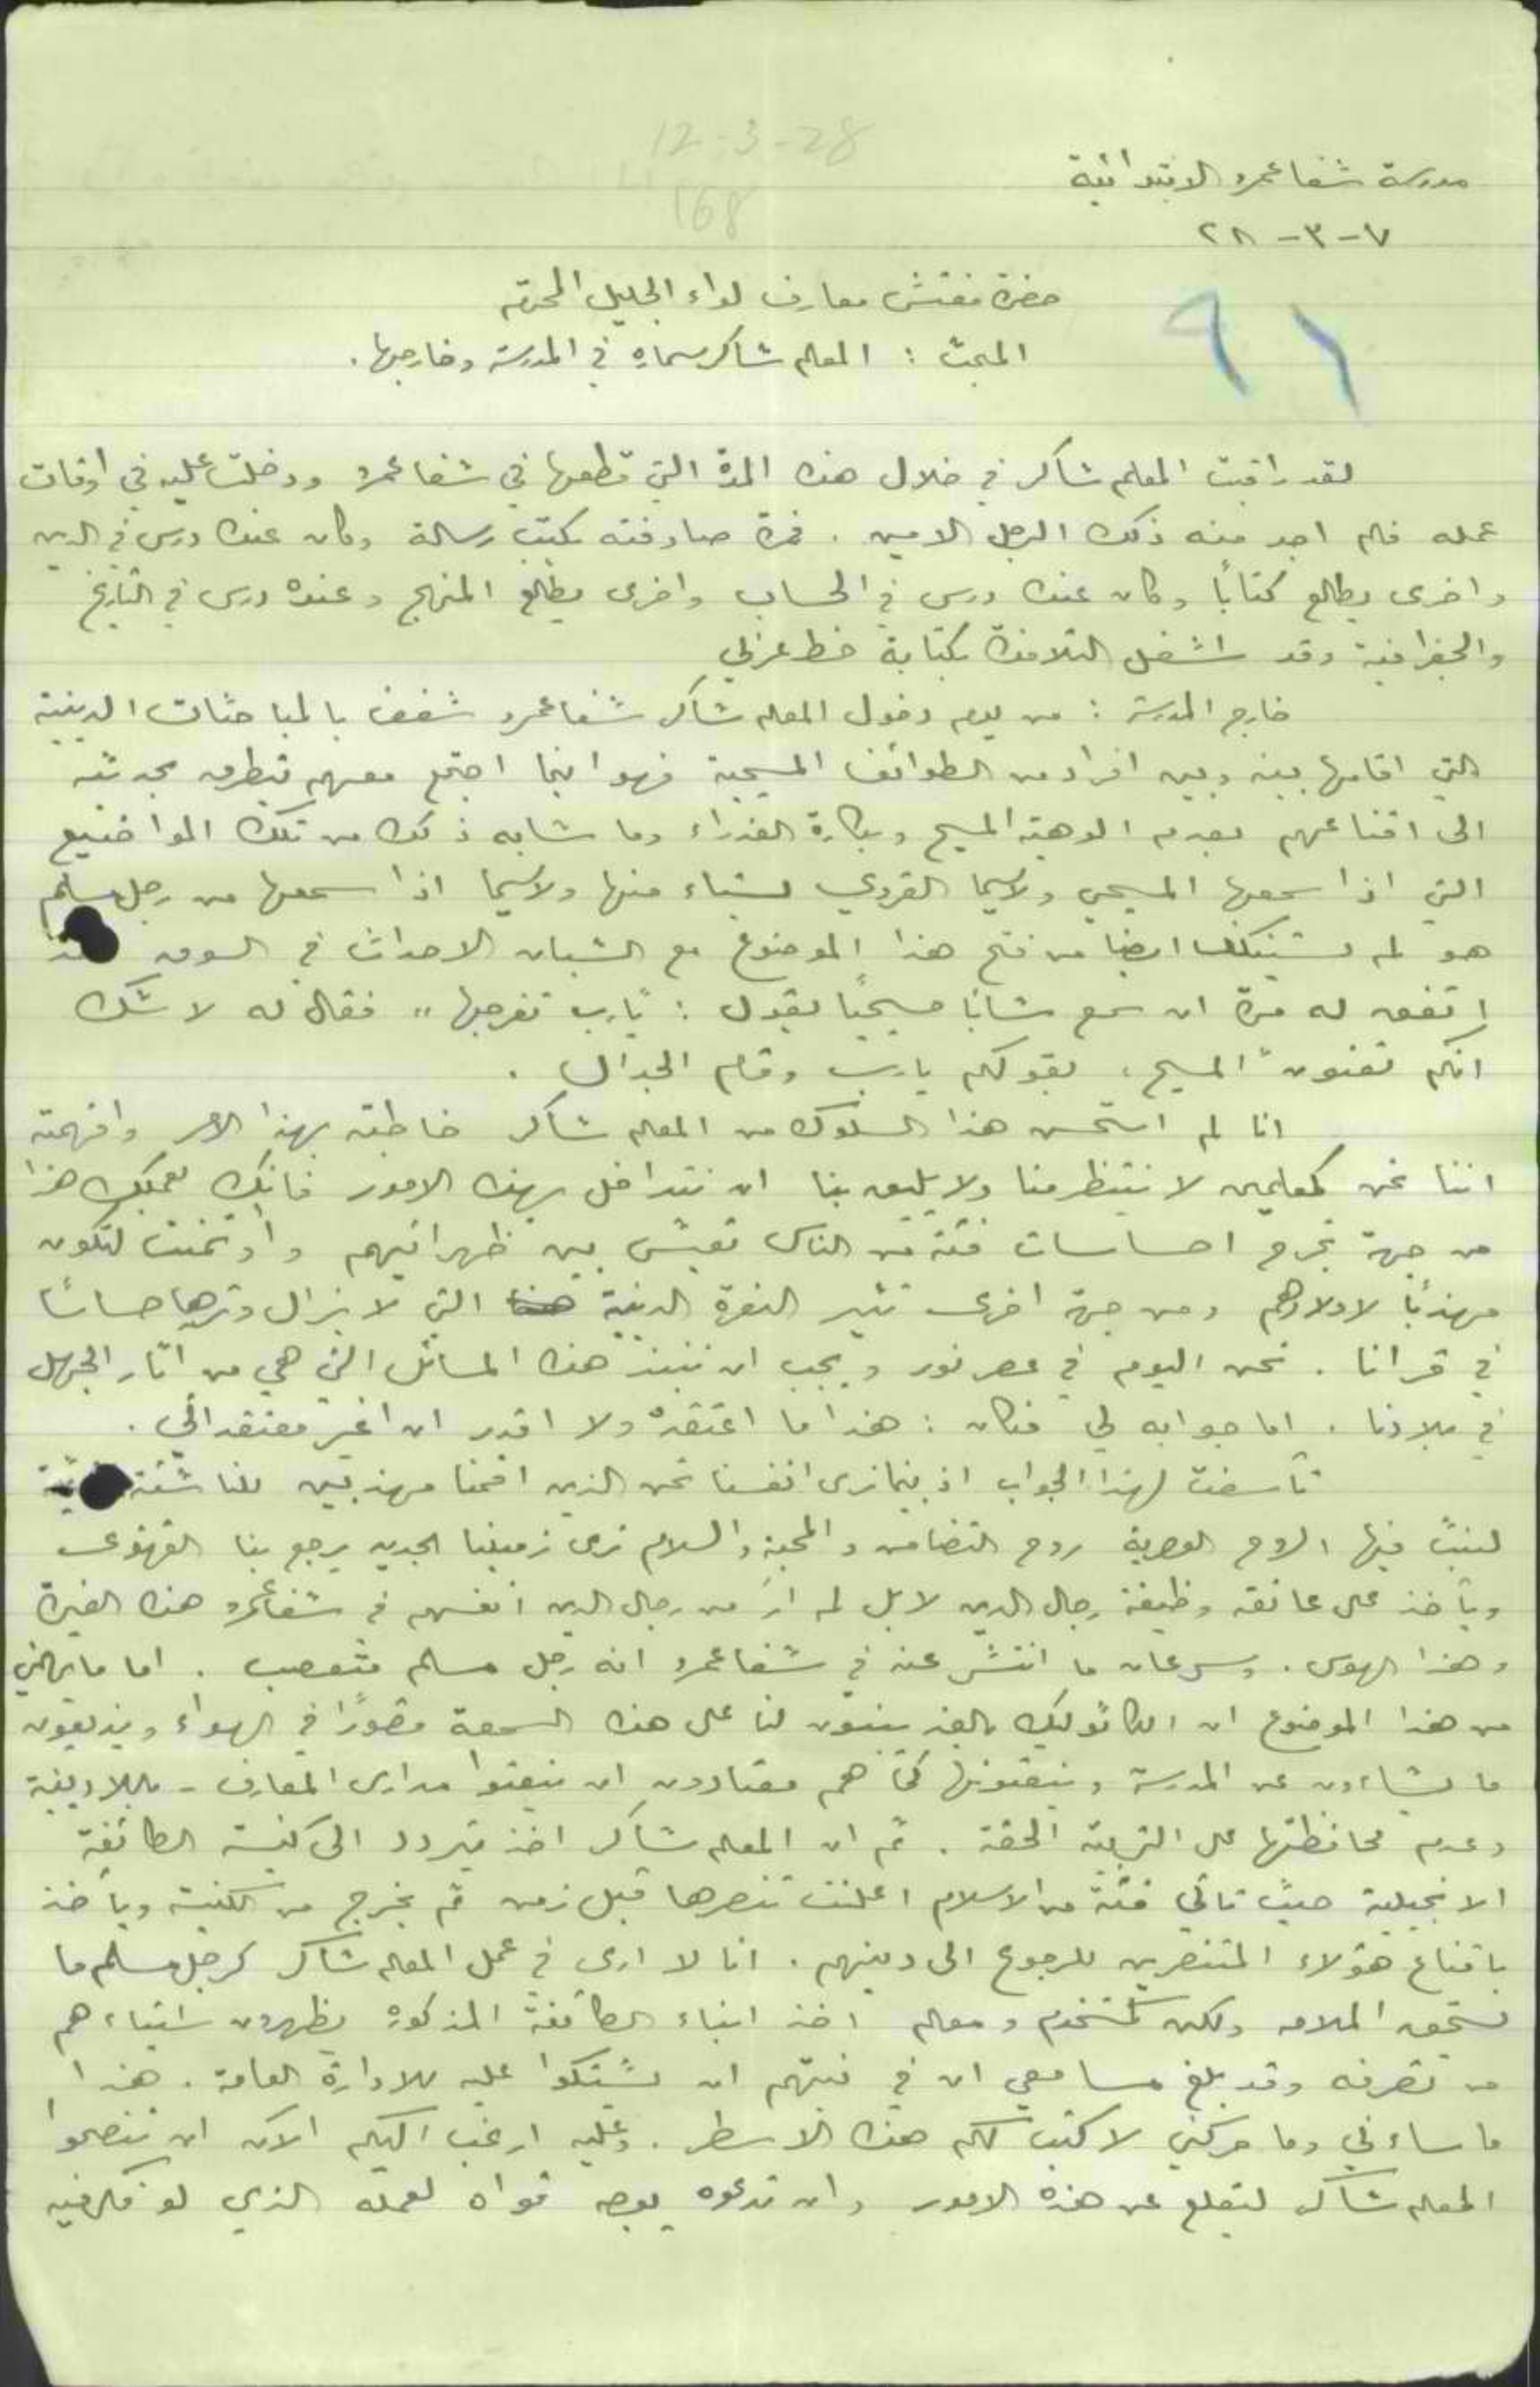 12-3-28
168
مدرسة شفاعمرو الابتدائية
٧-٣-٢٨
٩١
حضرة مفتش معارف لواء الجليل المحترم
المبحث : المعلم شاكر سماره في المدرسة وخارجها .
لقد راقبت المعلم شاكر في خلال هذه المدة التي قطعها في شفاعمرو ودخلت عليه في اوقات
عمله فلم اجد منه ذلك الرجل الامين . فمرة صادفته يكتب رسالة وكان عنده درس في الدين
واخرى يطالع كتاباً وكان عنده درس في الحساب واخرى يطالع المنهج وعنده درس في التاريخ
والجغرافية وقد اشغل التلامذة بكتابة خط عربي
خارج المدرسة : من يوم دخول المعلم شاكر شفاعمرو شغف بالمباحثات الدينية
التي اقامها بينه وبين افراد من الطوائف المسيحية فهو اينما اجتمع معهم يتطرق بحديثه
الى اقناعهم بعدم الوهية المسيح وبكارة العذراء وما شابه ذلك من تلك المواضيع
التي اذا سمعها المسيحي ولاسيما القروي يستاء منها ولاسيما اذا سمعها من رجل مسلم
هو لم يستنكف ايضا من فتح هذا الموضوع مع الشبان الاحداث في السوق
اتفق له مرة ان سمع شاباً مسيحياً يقول : "يارب تفرجها" فقال له لا شك
انكم تعنون المسيح ، بقولكم يارب وقام الجدال .
انا لم استحسن هذا السلوك من المعلم شاكر خاطبته بهذا الامر وافهمته
اننا نحن كمعلمين لا ينتظر منا ولا يليق بنا ان نتداخل بهذه الامور فانك بعملك هذا
من جهة تجرح احساسات فئة من الناس تعيش بين ظهرانيهم واؤتمنت لتكون
مهذباً لاولادهم ومن جهة اخرى تثير النعرة الدينية التي لا يزال وترها حساسًا
في قرانا . نحن اليوم في عصر نور ويجب ان ننبذ هذه المسائل التي هي من اثار الجهل
في بلادنا . اما جوابه لي فكان : هذا ما اعتقده ولا اقدر ان اغير معتقداتي .
تأسفت لهذا الجواب اذ بينما نرى انفسنا نحن الذين اقمنا مهذبين للناشئة
لنبث فيها الروح العصرية روح التضامن والمحبة والسلام نرى زميلنا الجديد يرجع بنا القهقرى
ويأخذ على عاتقه وظيفة رجال الدين لا بل لم ارَ من رجال الدين انفسهم في شفاعمرو هذه الغيرة
وهذا الهوس . وسرعان ما انتشر عنه في شفاعمرو انه رجل مسلم متعصب . اما ما يهمني
من هذا الموضوع ان الكاثوليك بالغد يبنون لنا على هذه السمعة قصورًا في الهواء ويذيعون
ما يشاءون عن المدرسة وينعتونها كما هم معتادون ان ينعتوا مدارس المعارف - باللادينية
وعدم محافظتها على التربية الحقة . ثم ان المعلم شاكر اخذ يتردد الى كنيسة الطائفة
الانجيلية حيث تأتي فئة من الاسلام اعلنت تنصرها قبل زمن ثم يخرج من الكنيسة ويأخذ
باقناع هؤلاء المتنصرين للرجوع الى دينهم . انا لا ارى في عمل المعلم شاكر كرجل مسلم ما
يستحق الملامه ولكن كمستخدم ومعلم اخذ ابناء الطائفة المذكورة يظهرون استياءهم
من تصرفه وقد بلغ مسامعي ان في نيتهم ان يشتكوا عليه للادارة العامة . هذا
ما ساءني وما حركني لاكتب لكم هذه الاسطر . وعليه ارغب اليكم الآن ان تنصحوا
المعلم شاكر ليقلع عن هذه الامور وان تدعوه يوجه قواه لعمله الذي لو فكر فيه